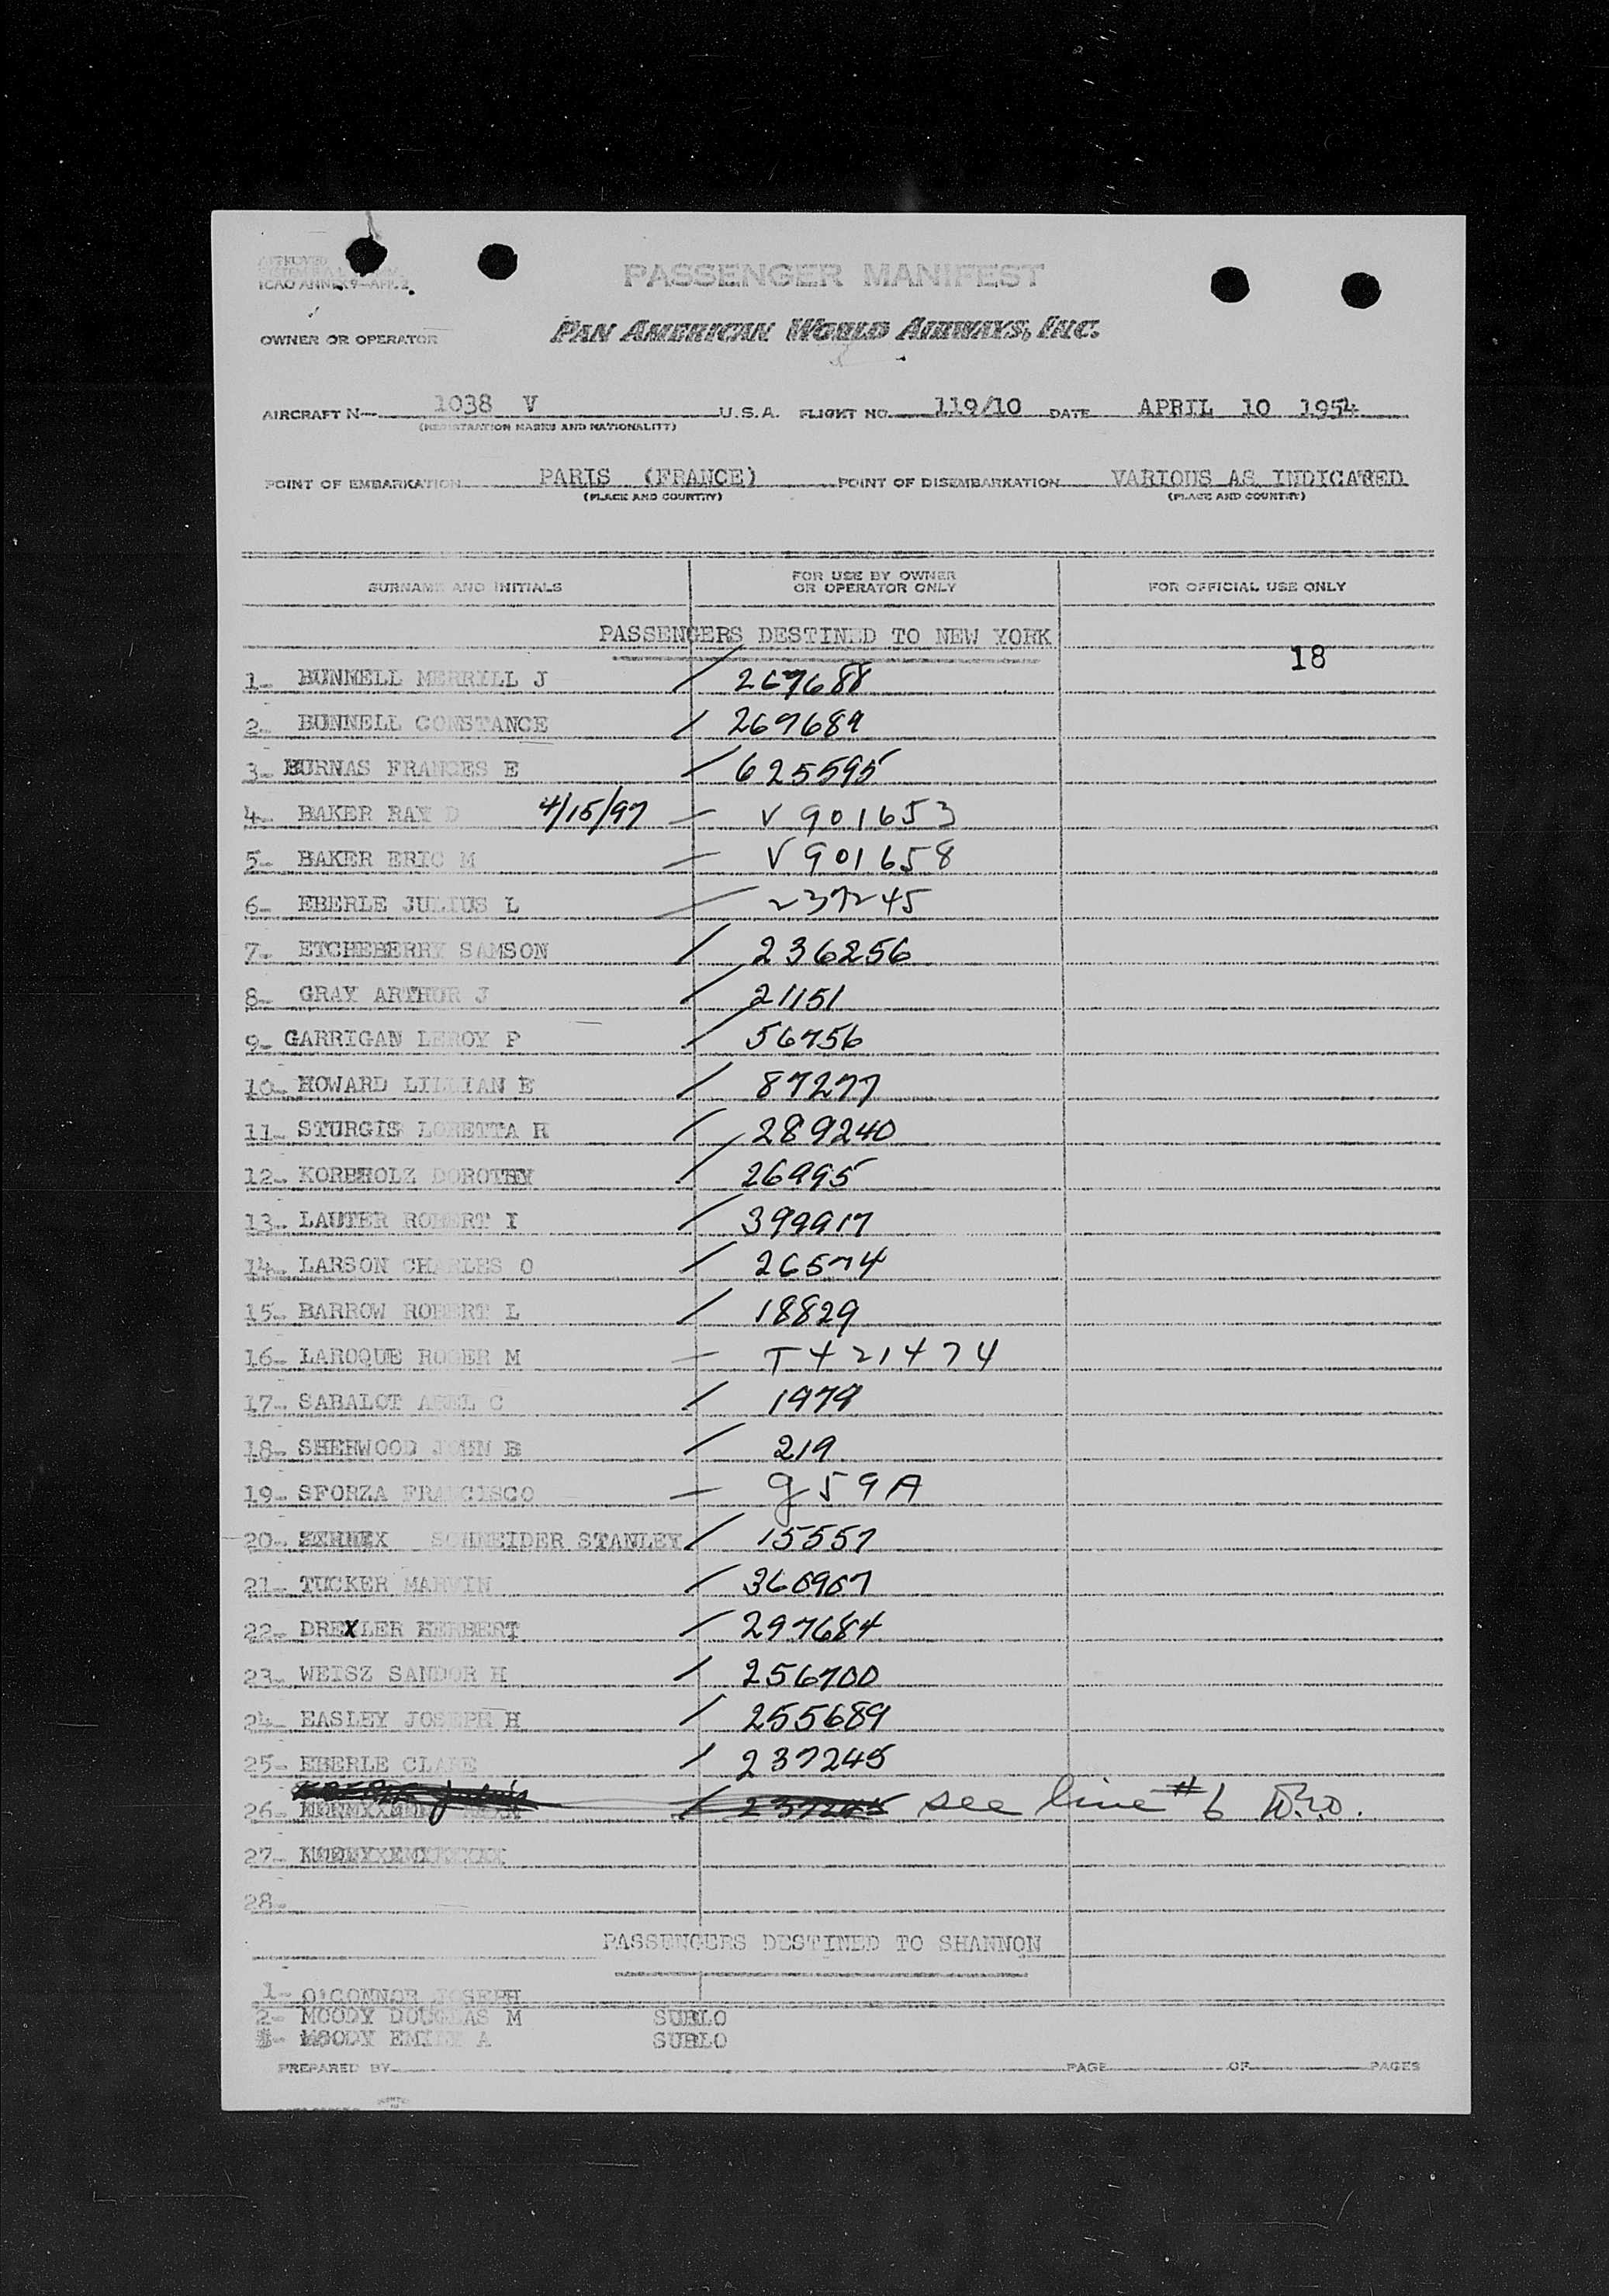 APPROVED
ICAO ANNEX 9—APP. 2
PASSENGER MANIFEST
OWNER OR OPERATOR PAN AMERICAN WORLD AIRWAYS, INC.
AIRCRAFT N— 1038 V U.S.A. FLIGHT NO. 119/10 DATE APRIL 10 1954
(REGISTRATION MARKS AND NATIONALITY)
POINT OF EMBARKATION PARIS (FRANCE) POINT OF DISEMBARKATION VARIOUS AS INDICATED
(PLACE AND COUNTRY) (PLACE AND COUNTRY)
SURNAME AND INITIALS FOR USE BY OWNER OR OPERATOR ONLY FOR OFFICIAL USE ONLY
PASSENGERS DESTINED TO NEW YORK
18
1- BUNNELL MERRILL J / 267688
2- BUNNELL CONSTANCE / 267689
3- BURNAS FRANCES E / 625595
4- BAKER RAY D 4/15/97 — V 901653
5- BAKER ERIC M — V 901658
6- EBERLE JULIUS L / 237245
7- ETCHEBERRY SAMSON / 236256
8- GRAY ARTHUR J / 21151
9- GARRIGAN LEROY P / 56756
10- HOWARD LILLIAN E / 87277
11- STURGIS LORETTA R / 289240
12- DOROTHY / 26995
13- LAUTER ROBERT I / 399917
14- LARSON CHARLES O / 26574
15- BARROW ROBERT L / 18829
16- LAROQUE ROGER M — T421474
17- SABALOT ABEL C / 1979
18- SHERWOOD JOHN B / 219
19- SFORZA FRANCISCO — g59A
20- SCHNEIDER STANLEY / 15557
21- TUCKER MARVIN / 360907
22- DREXLER HERBERT / 297684
23- WEISZ SANDOR H / 256700
24- EASLEY JOSEPH H / 255689
25- EBERLE CLARE / 237245
26- / 237245 see line #6
27-
28-
PASSENGERS DESTINED TO SHANNON
1- O'CONNOR JOSEPH
2- MOODY DOUGLAS M SUBLO
MOODY EMILY A SUBLO
PREPARED BY PAGE OF PAGES